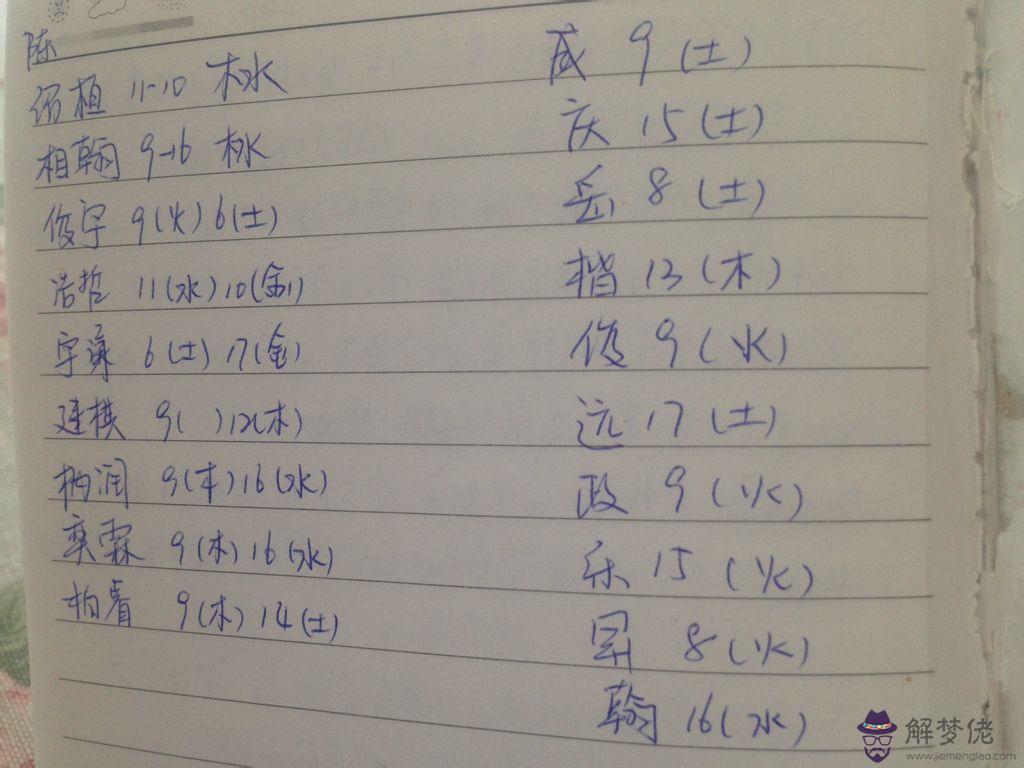 陈
绍植 11-10 木水
相翰 9-16 木水
俊宇 9(火)6(土)
浩哲 11(水)10(金)
宇谦 6(土)17(金)
建棋 9( )12(木)
柏润 9(木)16(水)
奕霖 9(木)16(水)
柏睿 9(木)14(土)
咸 9(土)
庆 15(土)
岳 8(土)
楷 13(木)
俊 9(火)
远 17(土)
政 9(火)
乐 15(火)
昇 8(火)
翰 16(水)
解梦佬
www.jiemenglao.com